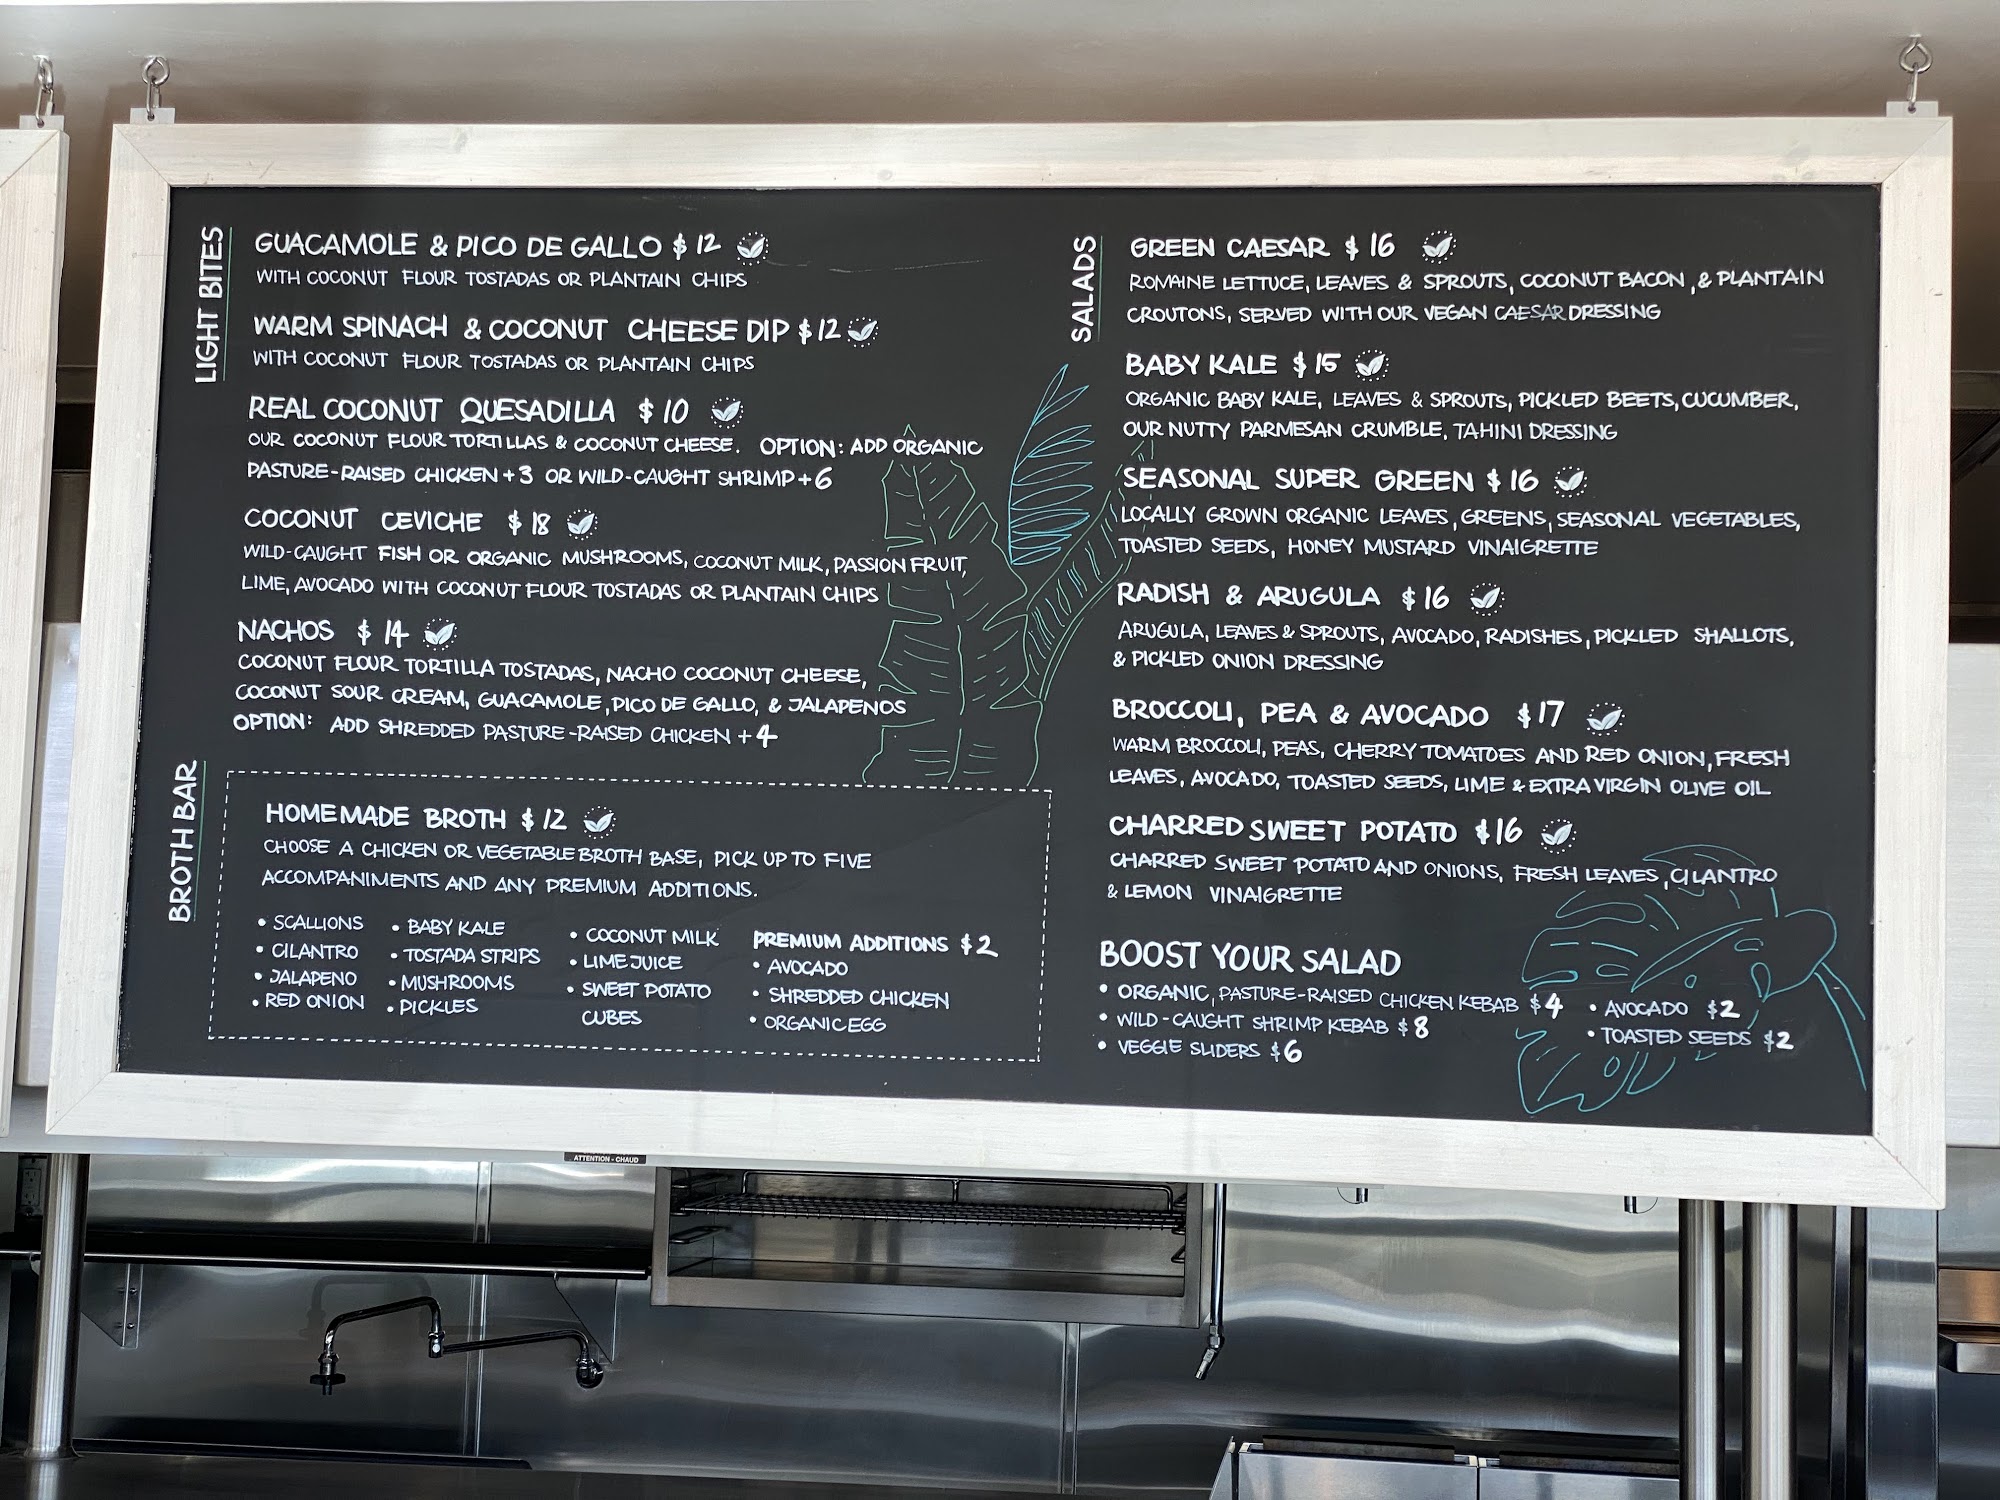 LIGHT BITES
GUACAMOLE & PICO DE GALLO $12
WITH COCONUT FLOUR TOSTADAS OR PLANTAIN CHIPS
WARM SPINACH & COCONUT CHEESE DIP $12
WITH COCONUT FLOUR TOSTADAS OR PLANTAIN CHIPS
REAL COCONUT QUESADILLA $10
OUR COCONUT FLOUR TORTILLAS & COCONUT CHEESE. OPTION: ADD ORGANIC
PASTURE-RAISED CHICKEN +3 OR WILD-CAUGHT SHRIMP +6
COCONUT CEVICHE $18
WILD-CAUGHT FISH OR ORGANIC MUSHROOMS, COCONUT MILK, PASSION FRUIT,
LIME, AVOCADO WITH COCONUT FLOUR TOSTADAS OR PLANTAIN CHIPS
NACHOS $14
COCONUT FLOUR TORTILLA TOSTADAS, NACHO COCONUT CHEESE,
COCONUT SOUR CREAM, GUACAMOLE, PICO DE GALLO, & JALAPENOS
OPTION: ADD SHREDDED PASTURE-RAISED CHICKEN +4
BROTH BAR
HOMEMADE BROTH $12
CHOOSE A CHICKEN OR VEGETABLE BROTH BASE, PICK UP TO FIVE
ACCOMPANIMENTS AND ANY PREMIUM ADDITIONS.
• SCALLIONS
• CILANTRO
• JALAPENO
• RED ONION
• BABY KALE
• TOSTADA STRIPS
• MUSHROOMS
• PICKLES
• COCONUT MILK
• LIME JUICE
• SWEET POTATO
CUBES
PREMIUM ADDITIONS $2
• AVOCADO
• SHREDDED CHICKEN
• ORGANIC EGG
SALADS
GREEN CAESAR $16
ROMAINE LETTUCE, LEAVES & SPROUTS, COCONUT BACON, & PLANTAIN
CROUTONS, SERVED WITH OUR VEGAN CAESAR DRESSING
BABY KALE $15
ORGANIC BABY KALE, LEAVES & SPROUTS, PICKLED BEETS, CUCUMBER,
OUR NUTTY PARMESAN CRUMBLE, TAHINI DRESSING
SEASONAL SUPER GREEN $16
LOCALLY GROWN ORGANIC LEAVES, GREENS, SEASONAL VEGETABLES,
TOASTED SEEDS, HONEY MUSTARD VINAIGRETTE
RADISH & ARUGULA $16
ARUGULA, LEAVES & SPROUTS, AVOCADO, RADISHES, PICKLED SHALLOTS,
& PICKLED ONION DRESSING
BROCCOLI, PEA & AVOCADO $17
WARM BROCCOLI, PEAS, CHERRY TOMATOES AND RED ONION, FRESH
LEAVES, AVOCADO, TOASTED SEEDS, LIME & EXTRA VIRGIN OLIVE OIL
CHARRED SWEET POTATO $16
CHARRED SWEET POTATO AND ONIONS, FRESH LEAVES, CILANTRO
& LEMON VINAIGRETTE
BOOST YOUR SALAD
• ORGANIC, PASTURE-RAISED CHICKEN KEBAB $4
• WILD-CAUGHT SHRIMP KEBAB $8
• VEGGIE SLIDERS $6
• AVOCADO $2
• TOASTED SEEDS $2
ATTENTION - CHAUD